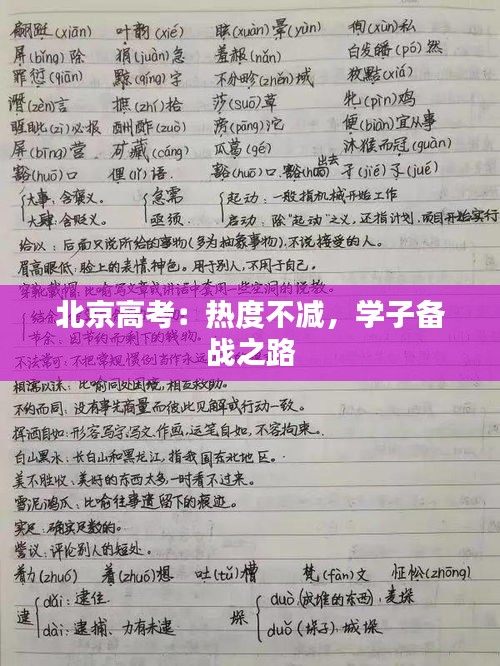 翩跹(xiān) 叶韵(xié) 眩(xuàn)晕(yùn) 徇(xùn)私
屏(bǐng)除 狷(juàn)急 羞赧(nǎn) 白发皤(pó)然
罪愆(qiān) 黥(qíng)字 不分畛(zhěn)域 狡黠(xiá)
谮(zèn)言 摭(zhí)拾 莎(suō)草 牝(pìn)鸡
睚眦(zì)必报 酬酢(zuò) 滂(pāng)沱 便(biàn)宜从事
屏(bīng)营 矿藏(cáng) 瓜葛(gé) 沐猴而冠(guàn)
豁(huō)口 俚(lǐ)语 豁(huō)口、豁(huō)出去 孑(jié)孓(jué)
大事:含褒义。 急需 起动:一般指机械开始工作
大肆:含贬义。 亟须 启动:除"起动"之义,还指计划、项目开始实行
给以:后面只说所给的事物(多为抽象事物),不说接受的人。
眉高眼低:脸上的表情,神色。用于别人,不用于自己。
北京高考:热度不减,学子备
战之路
相濡以沫:比喻同处困境,相互救助。
不约而同:没有事先商量而彼此见解或行动一致。
挥洒自如:形容写字,写文,作画,运笔自如,不容拘束。
白山黑水:长白山和黑龙江,指我国东北地区。
美不胜收:美好的东西太多,一时看不过来。
雪泥鸿爪:比喻往事遗留下的痕迹。
实足:确实足数的。
訾议:评论别人的短处。
着力(zhuó) 着(zhuó)想 吐(tǔ)槽 梵(fàn)文 怔忪(zhōng)
逮 dǎi:逮住 垛 duò(成堆的东西):麦垛
dài:逮捕、力有未逮 duǒ(垛子):城垛